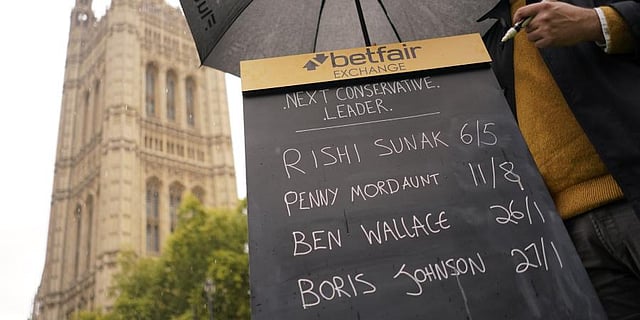 betfair
EXCHANGE
NEXT CONSERVATIVE.
LEADER.
RISHI SUNAK 6/5
PENNY MORDAUNT 11/8
BEN WALLACE 26/1
BORIS JOHNSON 27/1